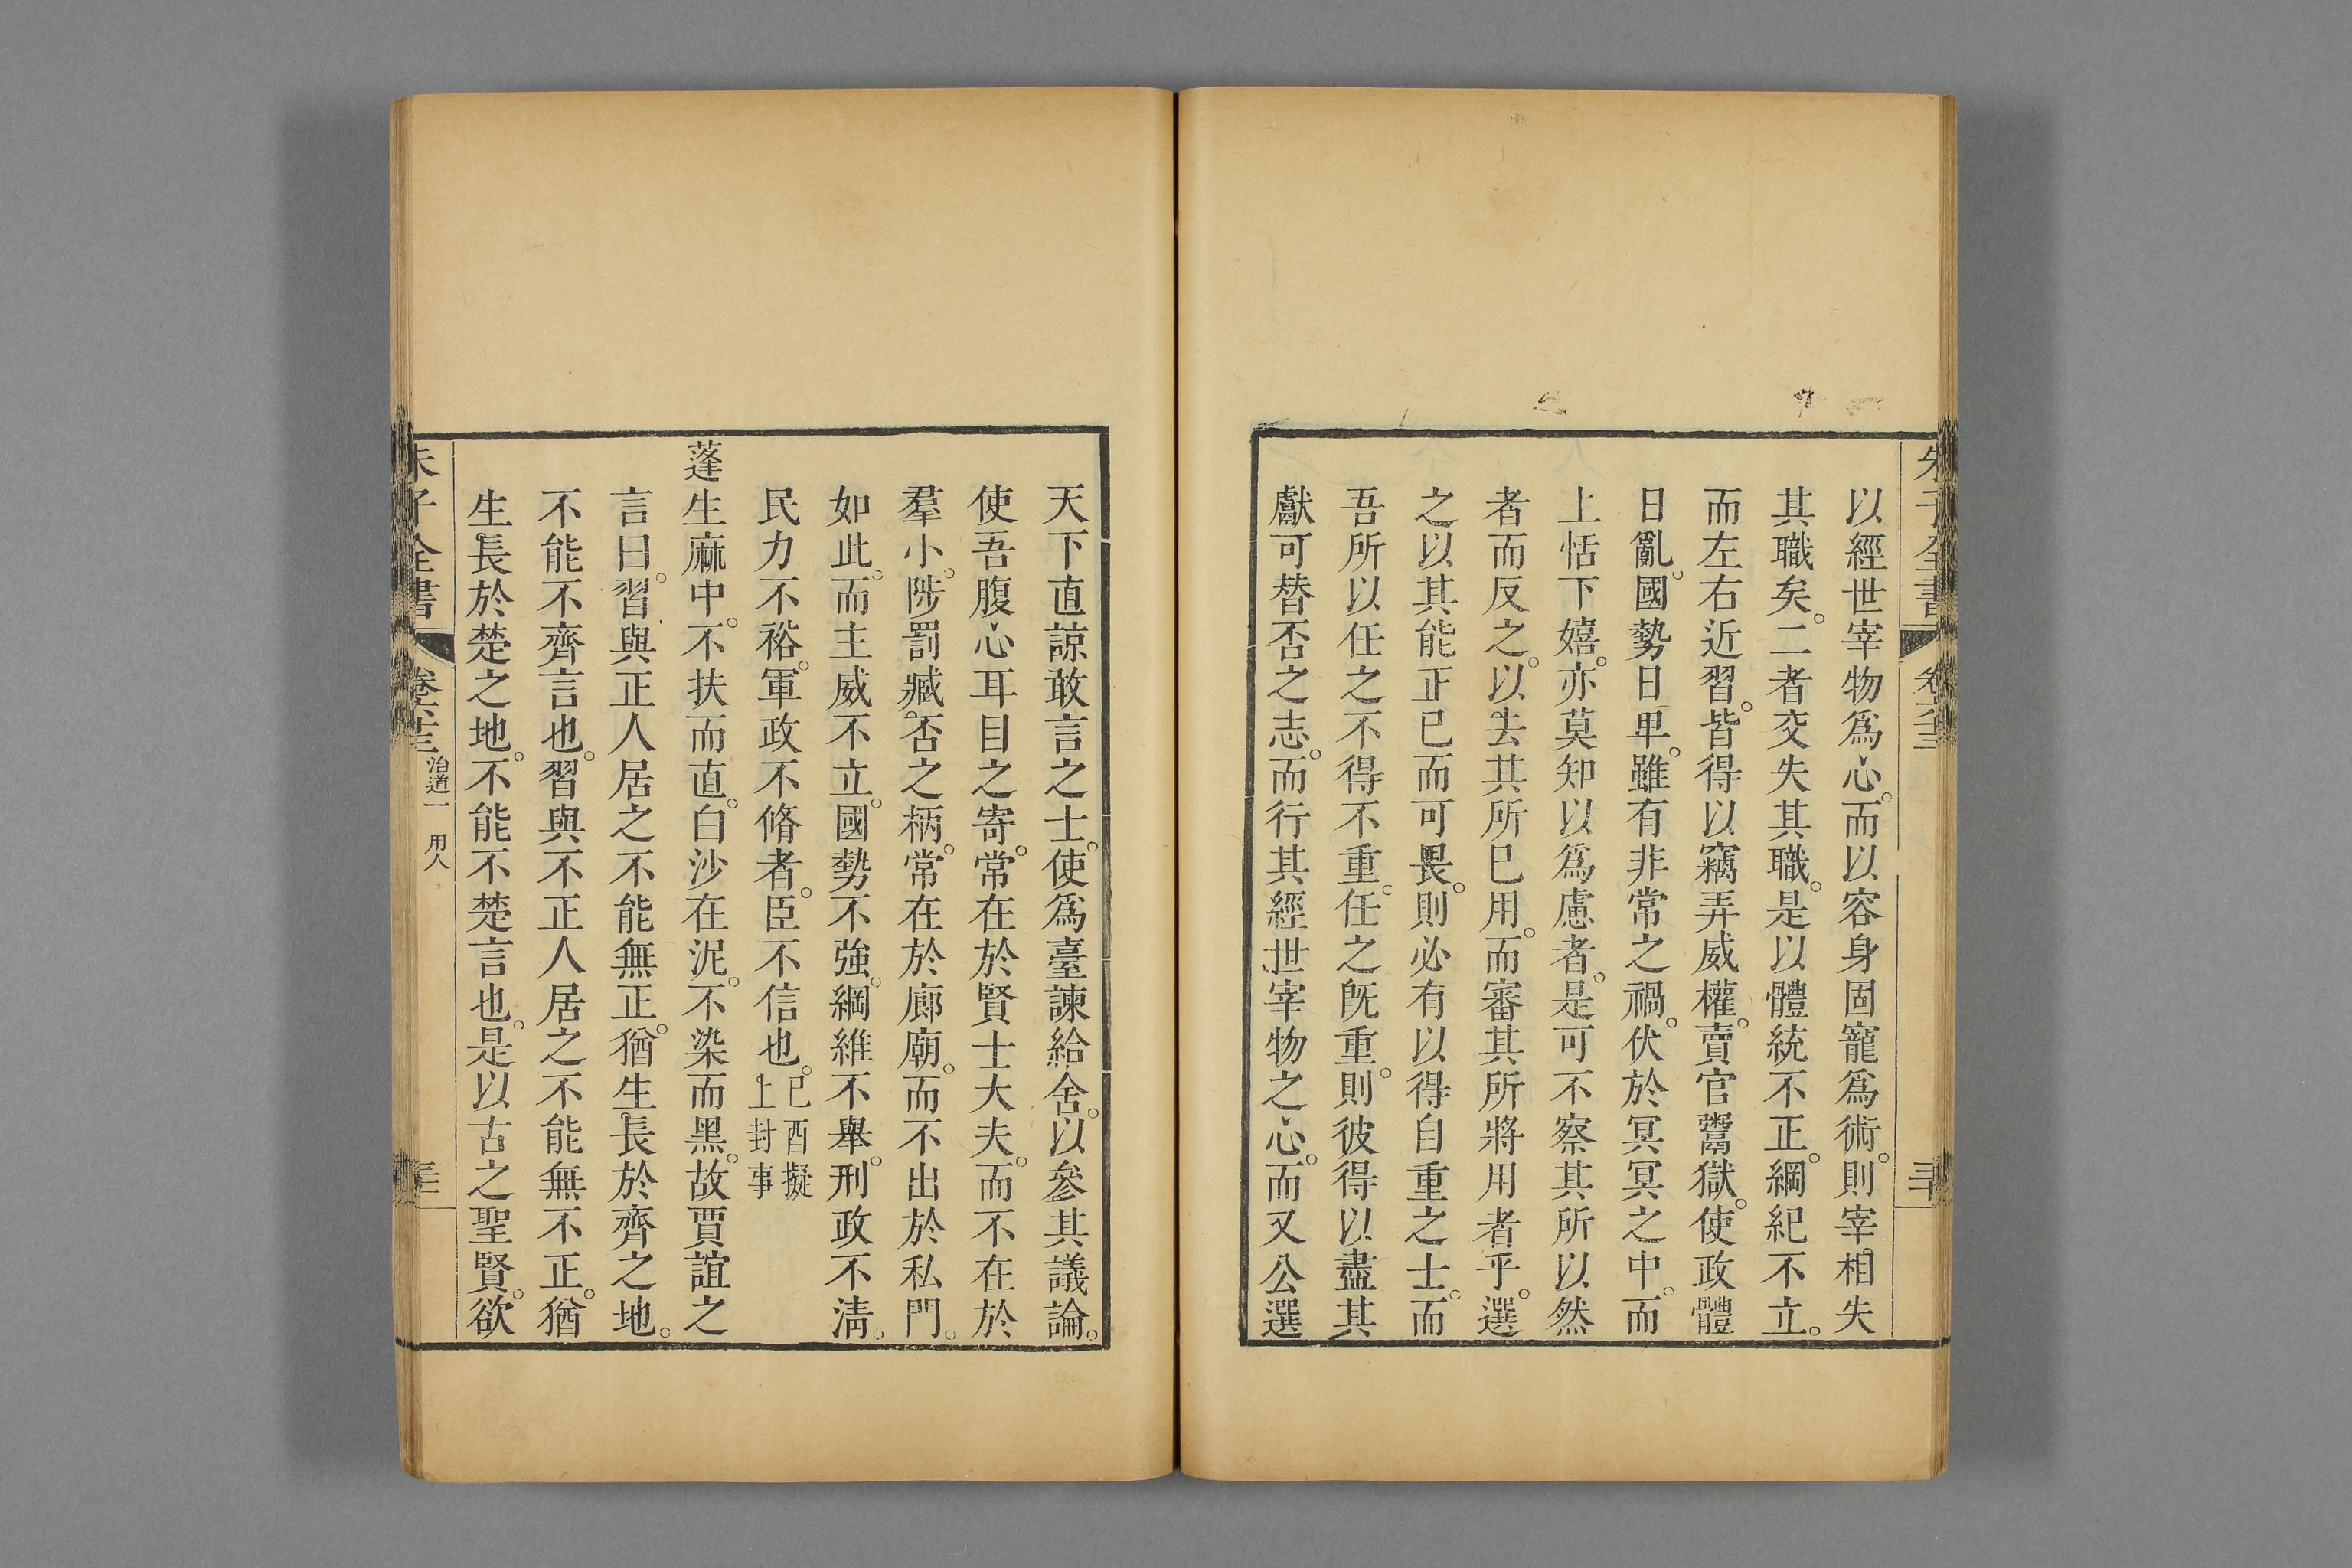 朱子全書 卷六十三 三十
以經世宰物爲心。而以容身固寵爲術。則宰相失
其職矣。二者交失其職。是以體統不正。綱紀不立。
而左右近習。皆得以竊弄威權。賣官鬻獄。使政體
日亂。國勢日卑。雖有非常之禍。伏於冥冥之中。而
上恬下嬉。亦莫知以爲慮者。是可不察其所以然
者而反之。以去其所已用。而審其所將用者乎。選
之以其能正已而可畏。則必有以得自重之士。而
吾所以任之不得不重。任之旣重。則彼得以盡其
獻可替否之志。而行其經世宰物之心。而又公選
天下直諒敢言之士。使爲臺諫給舍。以參其議論。
使吾腹心耳目之寄。常在於賢士大夫。而不在於
羣小。陟罰臧否之柄。常在於廊廟。而不出於私門。
如此。而主威不立。國勢不強。綱維不舉。刑政不淸。
民力不裕。軍政不脩者。臣不信也。已酉擬上封事
蓬生麻中。不扶而直。白沙在泥。不染而黑。故賈誼之
言曰。習與正人居之不能無正。猶生長於齊之地。
不能不齊言也。習與不正人居之不能無不正。猶
生長於楚之地。不能不楚言也。是以古之聖賢。欲
朱子全書 卷六十三 治道一 用人